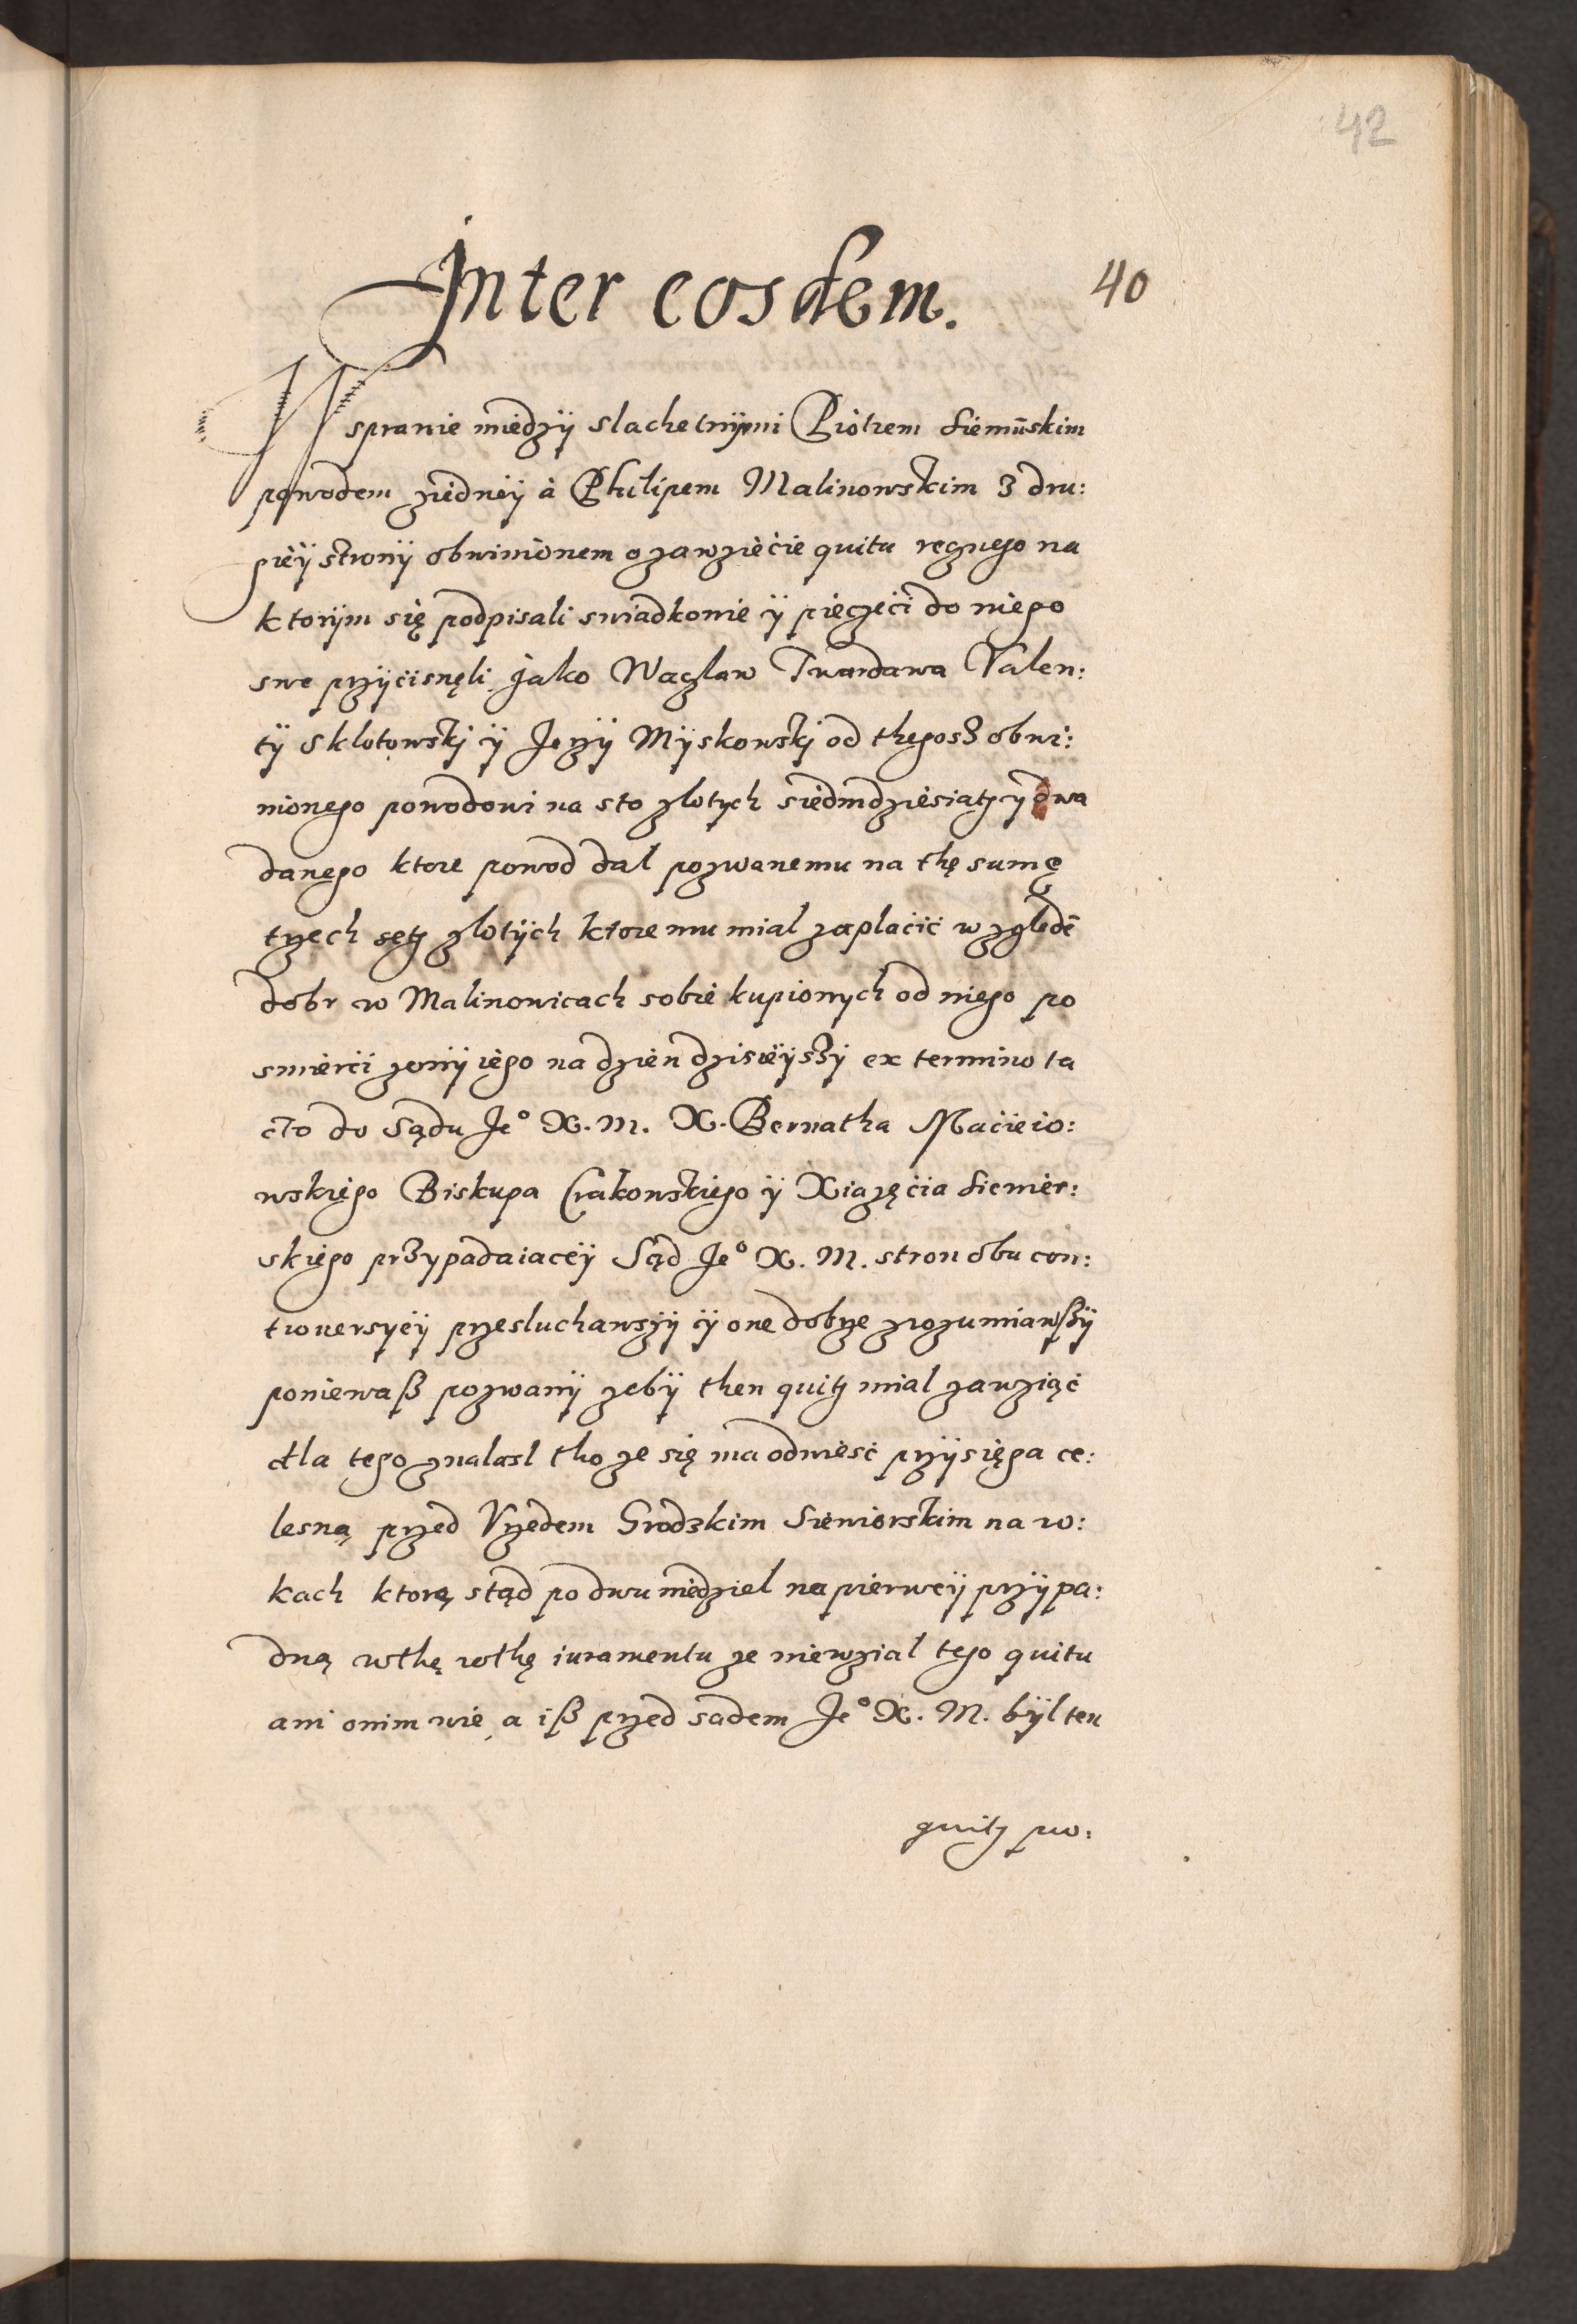 42
Inter eosdem.
40
W sprawie miedzÿ slachetnÿmi Piotrem Siemūskim
powodem ziedneÿ à Philipem Malinowskim z dru:
gieÿ stronÿ obwinionem o zawziecie quitu ręcznego na
ktorÿm się podpisali swiadkowie ÿ pieczęci do niego
swe przÿcisnęli jako Waczlaw Twardawa Valen:
tÿ Sklotowskj ÿ Jerzÿ Mÿskowskj od thegosz obwi:
nionego powodowi na sto zlotych siedmdziesiątz ÿ dwa
danego ktore powod dal pozwanemu na thę sumę
trzech sętz zlotÿch ktore mu mial zaplacić wzgledē
dobr w Malinowicach sobie kupionych od niego po
smierci zonÿ iego na dzien dzisieÿszÿ ex termino ta
cto do Sądu Je° X. M. X. Bernatha Macieio:
wskięgo Biskupa Crakowskiego ÿ Xiazęcia Siewier:
skięgo przypadaiaceÿ Sąd Je° X. M. stron obu con:
trowersyeÿ przesluchawszÿ ÿ one dobrze zrozumiawßÿ
poniewaß pozwanÿ zebÿ then quitz mial zawziąć
dla tego znalasl tho ze się ma odwiesć przÿsięga ce:
lesną przed Vrzedem Grodzkim Siewiorskim na ro:
kach ktorą stąd po dwu niedziel napierweÿ przÿpa:
dną w thę rothę iuramentu ze niewzial tego quitu
ani onim wie, a iß przed sadem Je° X. M. bÿl ten
quitz pro: